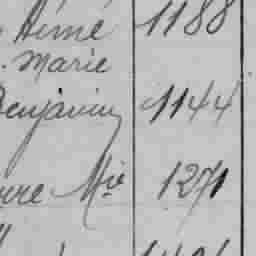 Aimé 1188
Marie
Benjamin 1144
Mie 1271